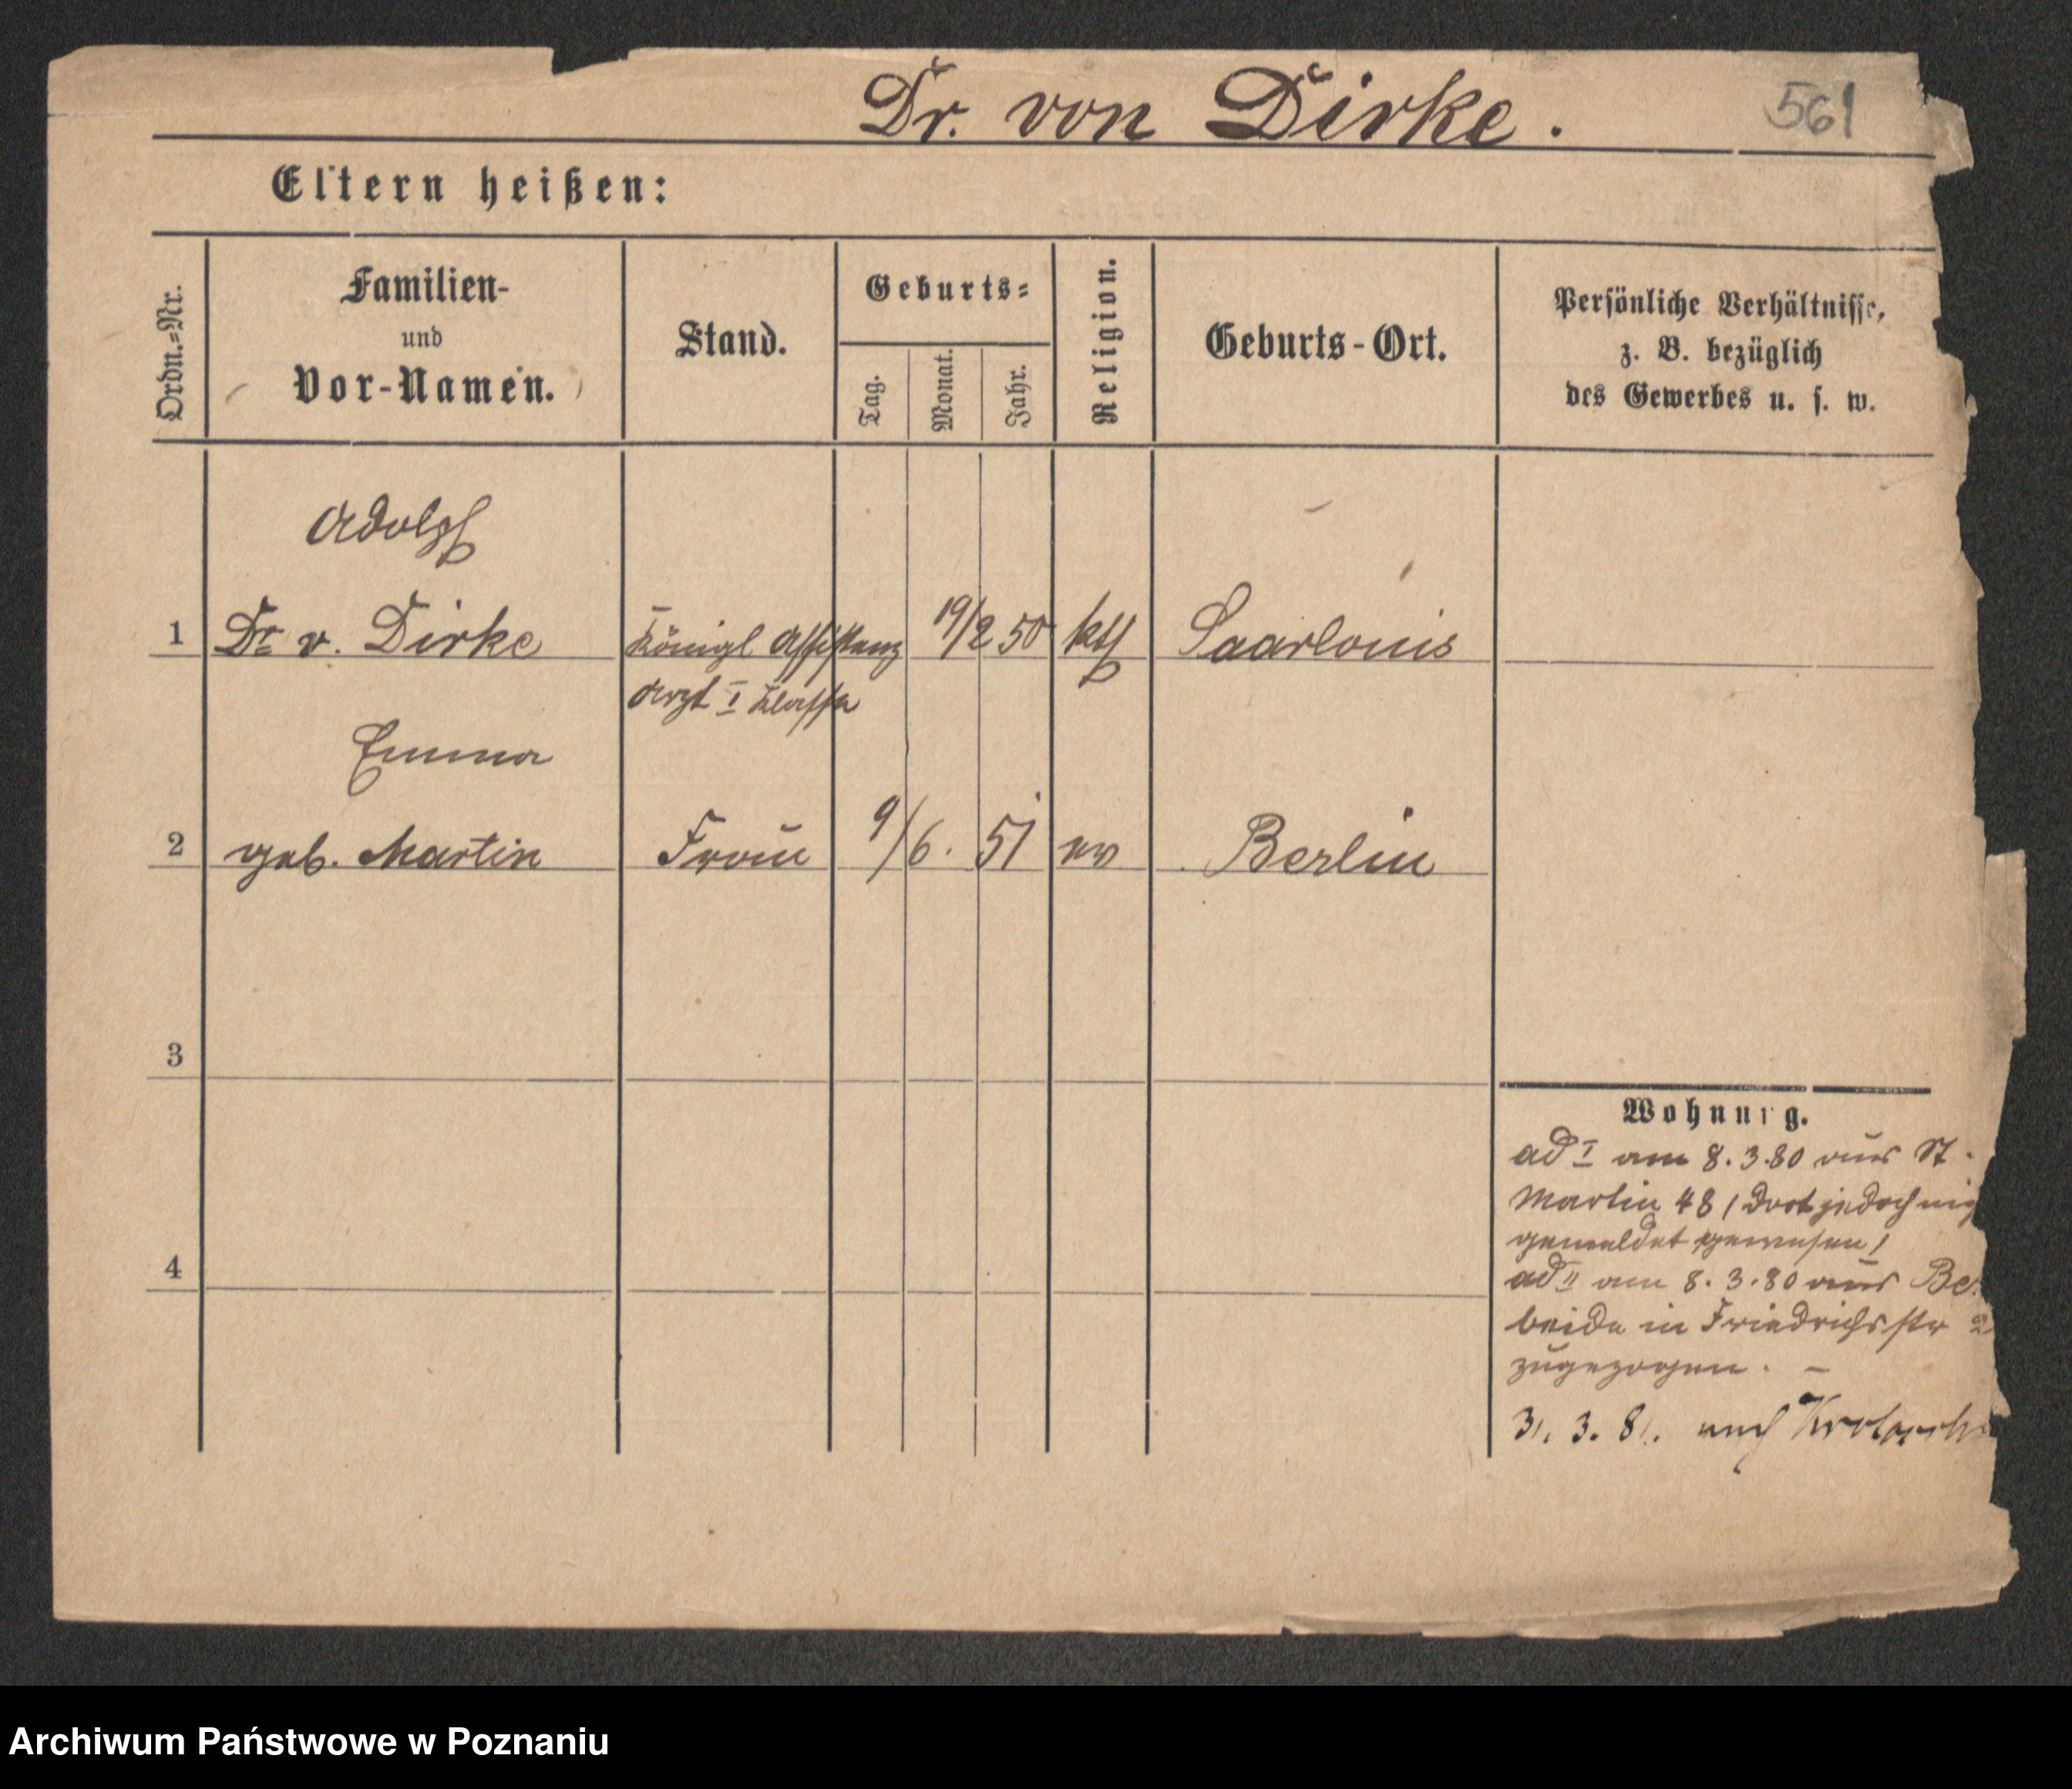 Dr. von Dirke.
561
Eltern heißen:
Ordn.-Nr.
Familien-
und
Vor-Namen.
Stand.
Geburts-
Tag.
Monat.
Jahr.
Religion.
Geburts-Ort.
Persönliche Verhältnisse,
z. B. bezüglich
des Gewerbes u. s. w.
Adolph
1 Dr v. Dirke Königl Assistenz 19/2 50 kth Saarlouis
Arzt I Klasse
Emma
2 geb. Martin Frau 9/6. 51 ev Berlin
3
4
Wohnung.
ad I am 8.3.80 aus St.
Martin 48 (dort jedoch
gemeldet gewesen)
ad II am 8.3.80 aus Be
beide in Friedrichsstr 2
zugezogen. –
31. 3. 81. nach
Archiwum Państwowe w Poznaniu